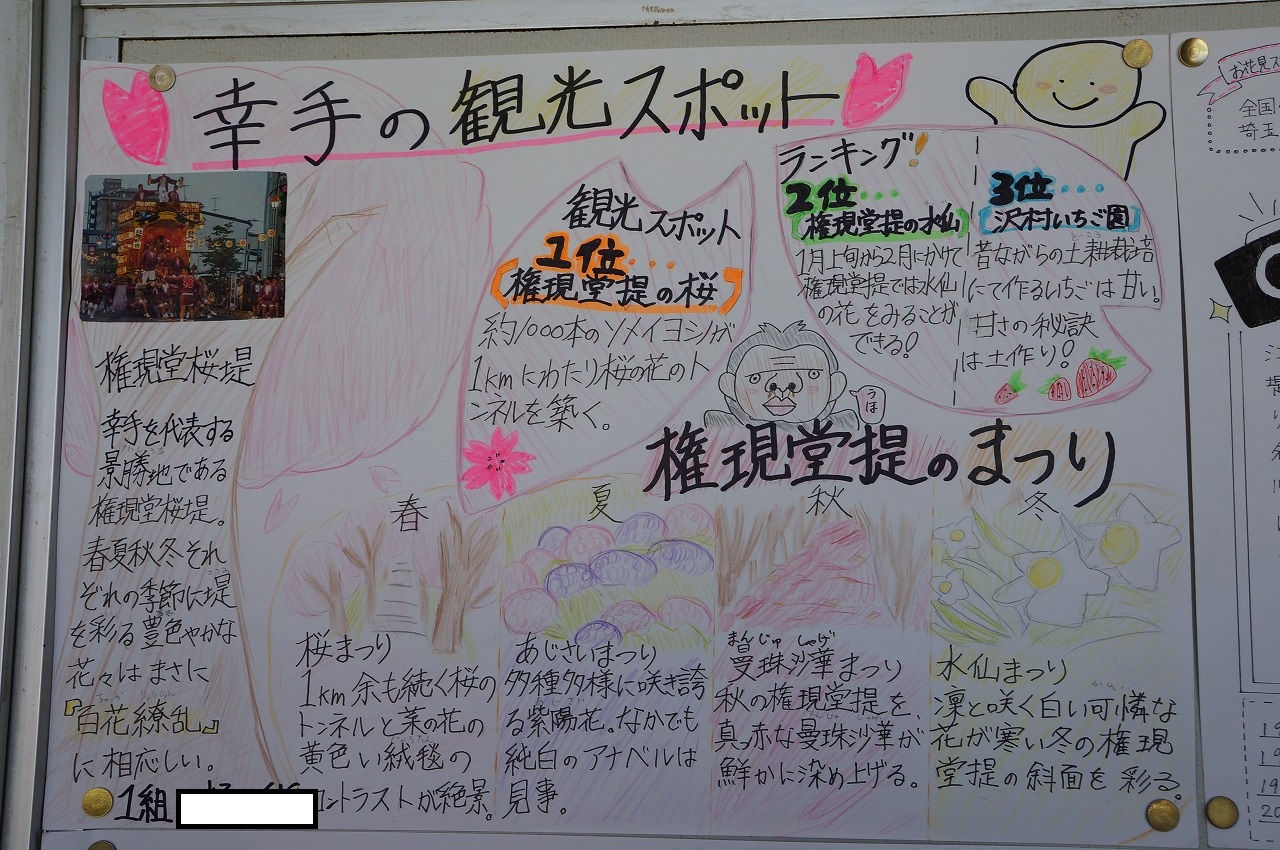 幸手の観光スポット
権現堂桜堤
幸手を代表する
景勝地である
権現堂桜堤。
春夏秋冬それ
ぞれの季節に堤
を彩る豊色やかな
花々はまさに
『百花繚乱』
に相応しい。
1組
観光スポット
1位・・・
権現堂提の桜
約1000本のソメイヨシノが
1kmにわたり桜の花のト
ンネルを築く。
ランキング!
2位・・・
権現堂提の水仙
1月上旬から2月にかけて
権現堂提では水仙
の花をみることが
できる!
3位・・・
沢村いちご園
昔ながらの土耕栽培
にて作るいちごは甘い。
甘さの秘訣
は土作り!
うほ
権現堂提のまつり
春
桜まつり
1km余も続く桜の
トンネルと菜の花の
黄色い絨毯の
コントラストが絶景。
夏
あじさいまつり
多種多様に咲き誇
る紫陽花。なかでも
純白のアナベルは
見事。
秋
まんじゅしゃげ
曼珠沙華まつり
秋の権現堂提を、
真っ赤な曼珠沙華が
鮮かに染め上げる。
冬
水仙まつり
凛と咲く白い可憐な
花が寒い冬の権現
堂提の斜面を彩る。
お花見ス
全国
埼玉